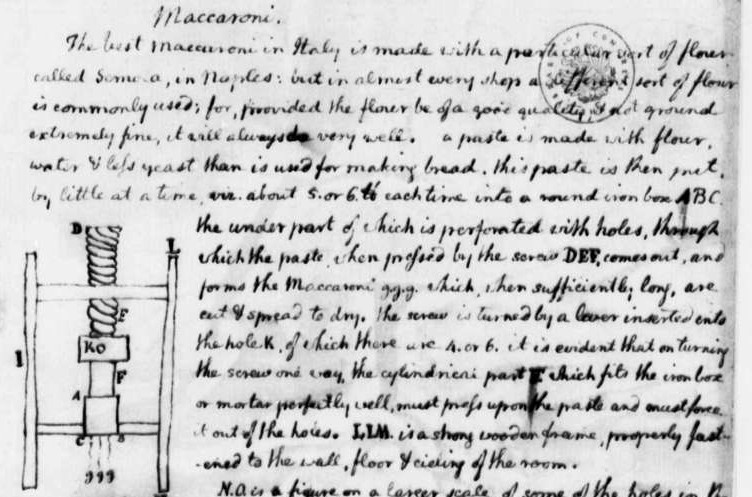 Maccaroni.
The best maccaroni in Italy is made with a particular sort of flour
called Semola, in Naples: but in almost every shop a different sort of flour
is commonly used; for, provided the flour be of a good quality, & not ground
extremely fine, it will always do very well. a paste is made with flour,
water & less yeast than is used for making bread. this paste is then put,
by little at a time, viz. about 5. or 6. ℔ each time into a round iron box ABC.
the under part of which is perforated with holes, through
which the paste, when pressed by the screw DEF, comes out, and
forms the Maccaroni g.g.g. which, when sufficiently long, are
cut & spread to dry. the screw is turned by a lever inserted into
the hole K, of which there are 4. or 6. it is evident that on turning
the screw one way, the cylindrical part F. which fits the iron box
or mortar perfectly well, must press upon the paste and must force
it out of the holes. LLM. is a strong wooden frame, properly fast-
-ened to the wall, floor & cieling of the room.
N.O. is a figure on a larger scale of some of the holes in
D
L
E
I
KO
F
A
C B
ggg